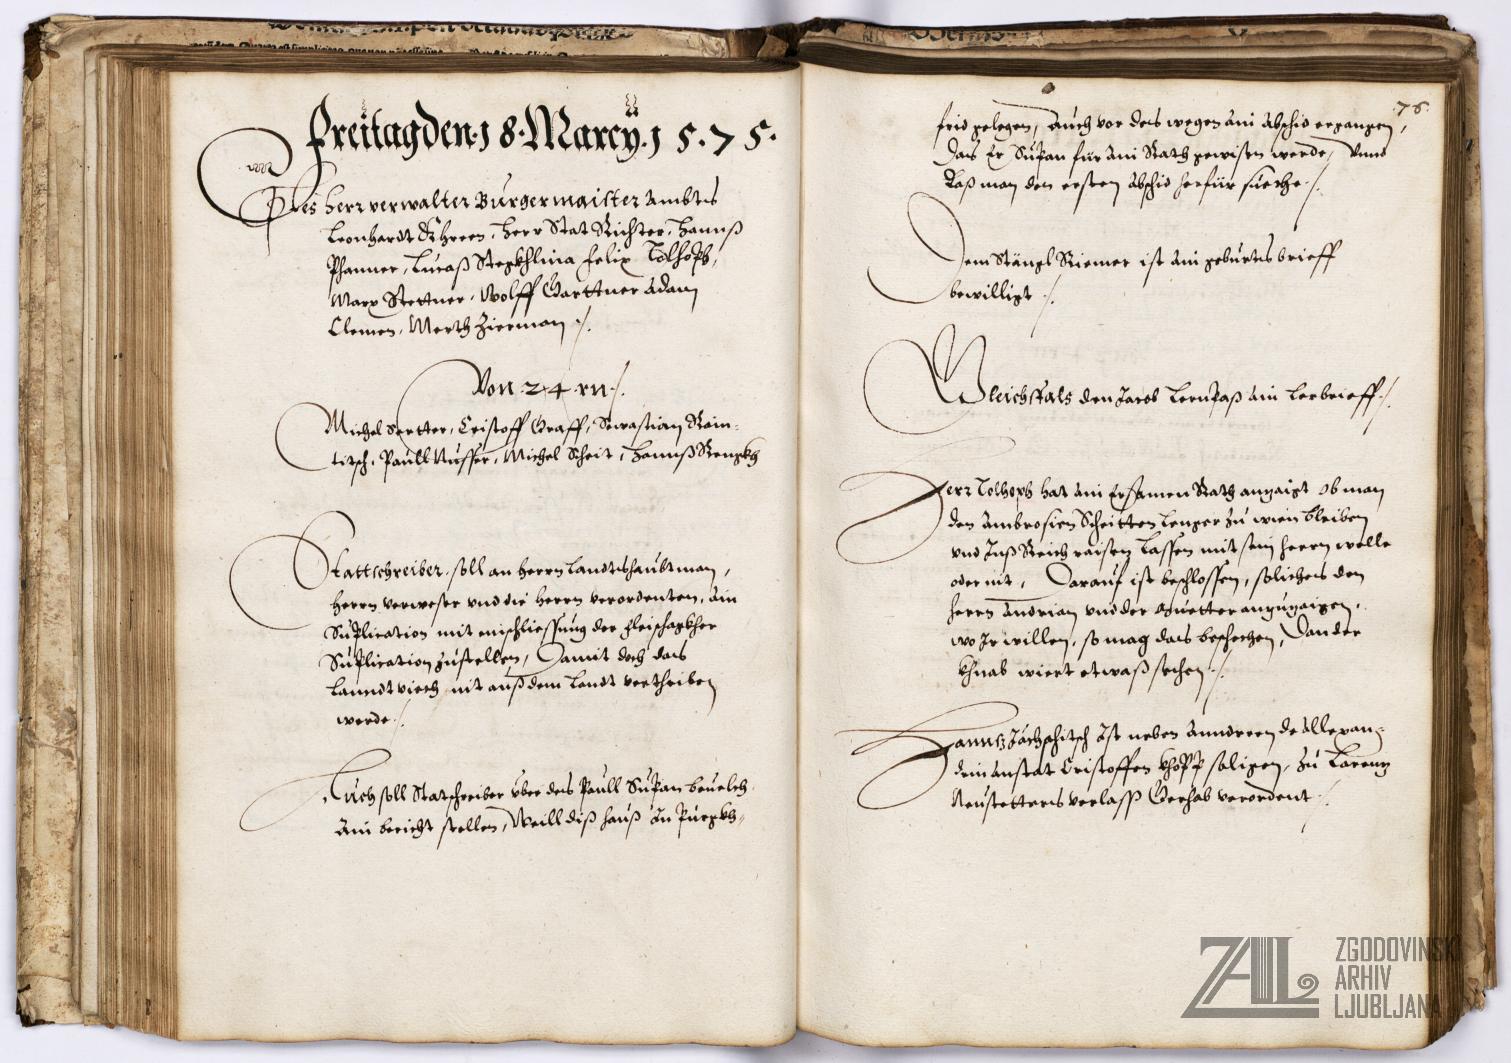 Freitag den 18 Marcÿ 1575.
Des Herr verwalter Burgermaister Ambts
Leonhardt Khreen, Herr Stat Richter, Hannß
Phanner, Lucaß Felix Tolhoph,
Marx Stettner, Wolff Garttner Adam
Clemen, Merth Zierman ./.
Von 24 rn ./.
Michel Cristoff Graff, Sewastian Rain-
titsch, Paull Nusser, Michel Scheit, Hannß Renzkh
Stattschreiber soll an herrn Landtshaubtman,
herrn verweser vnd die herrn verordenten, ain
Suplication mit einschliessung der fleischagkher
Suplication zustellen, Damit doch das
Lanndtviech nit auß dem Landt vertriben
werde ./.
Auch soll Statschreiber vber des Paull Supan beuelch
ain bericht stellen, Weill diß hauß in Purgkh-
76.
frid gelegen, Auch vor des wegen ain Abschid ergangen,
das Er Supan für ain Rath gewisen werde, vnnd
daß man den ersten Abschid herfür sueche ./.
Dem Stängl Riemer ist ain geburts brieff
bewilligt ./.
Gleichfals den Jacob ain Lerbrieff ./.
Herr Tolhoph hat ain Ersamen Rath anzaigt ob man
den Ambrosien Scheitten lenger zu wien bleiben
vnd Inß Reich raisen lassen mit sein herrn welle
oder nit, Darauf ist beschlossen, soliches den
herrn Andrian vnd der Muetter anzuzaigen,
wo Ir willen, so mag das beschechen, Dan der
khnab wiert etwaß sechen ./.
ist neben Anndreen de Allexan-
drin anstat Cristoffen khopp saligen, zu Lorenz
Neustetters verlass Gerhab verordent ./.
ZAL
ZGODOVINSKI
ARHIV
LJUBLJANA